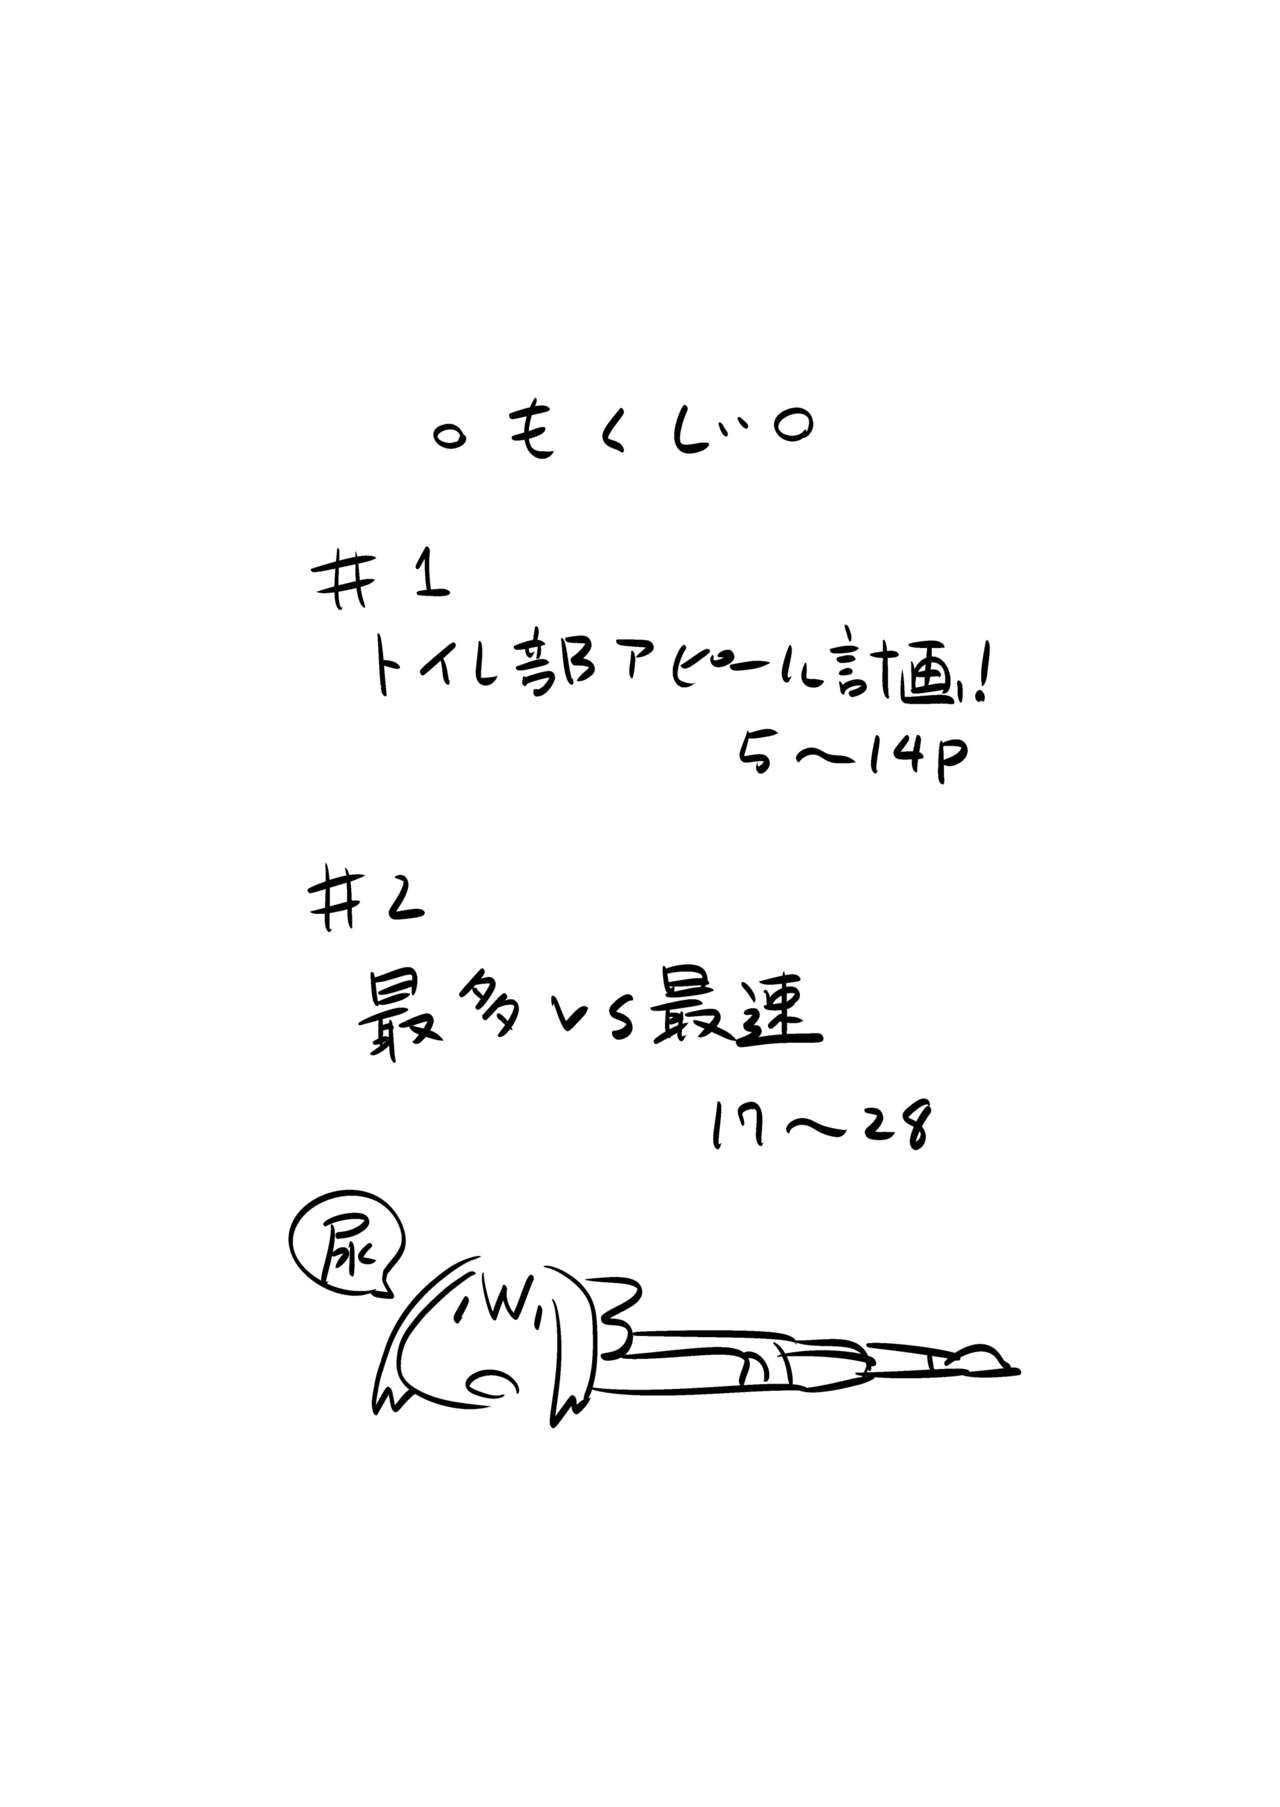 ○もくじ○
#1
トイレ部アピール計画!
5〜14p
#2
最多vs最速
17〜28
尿